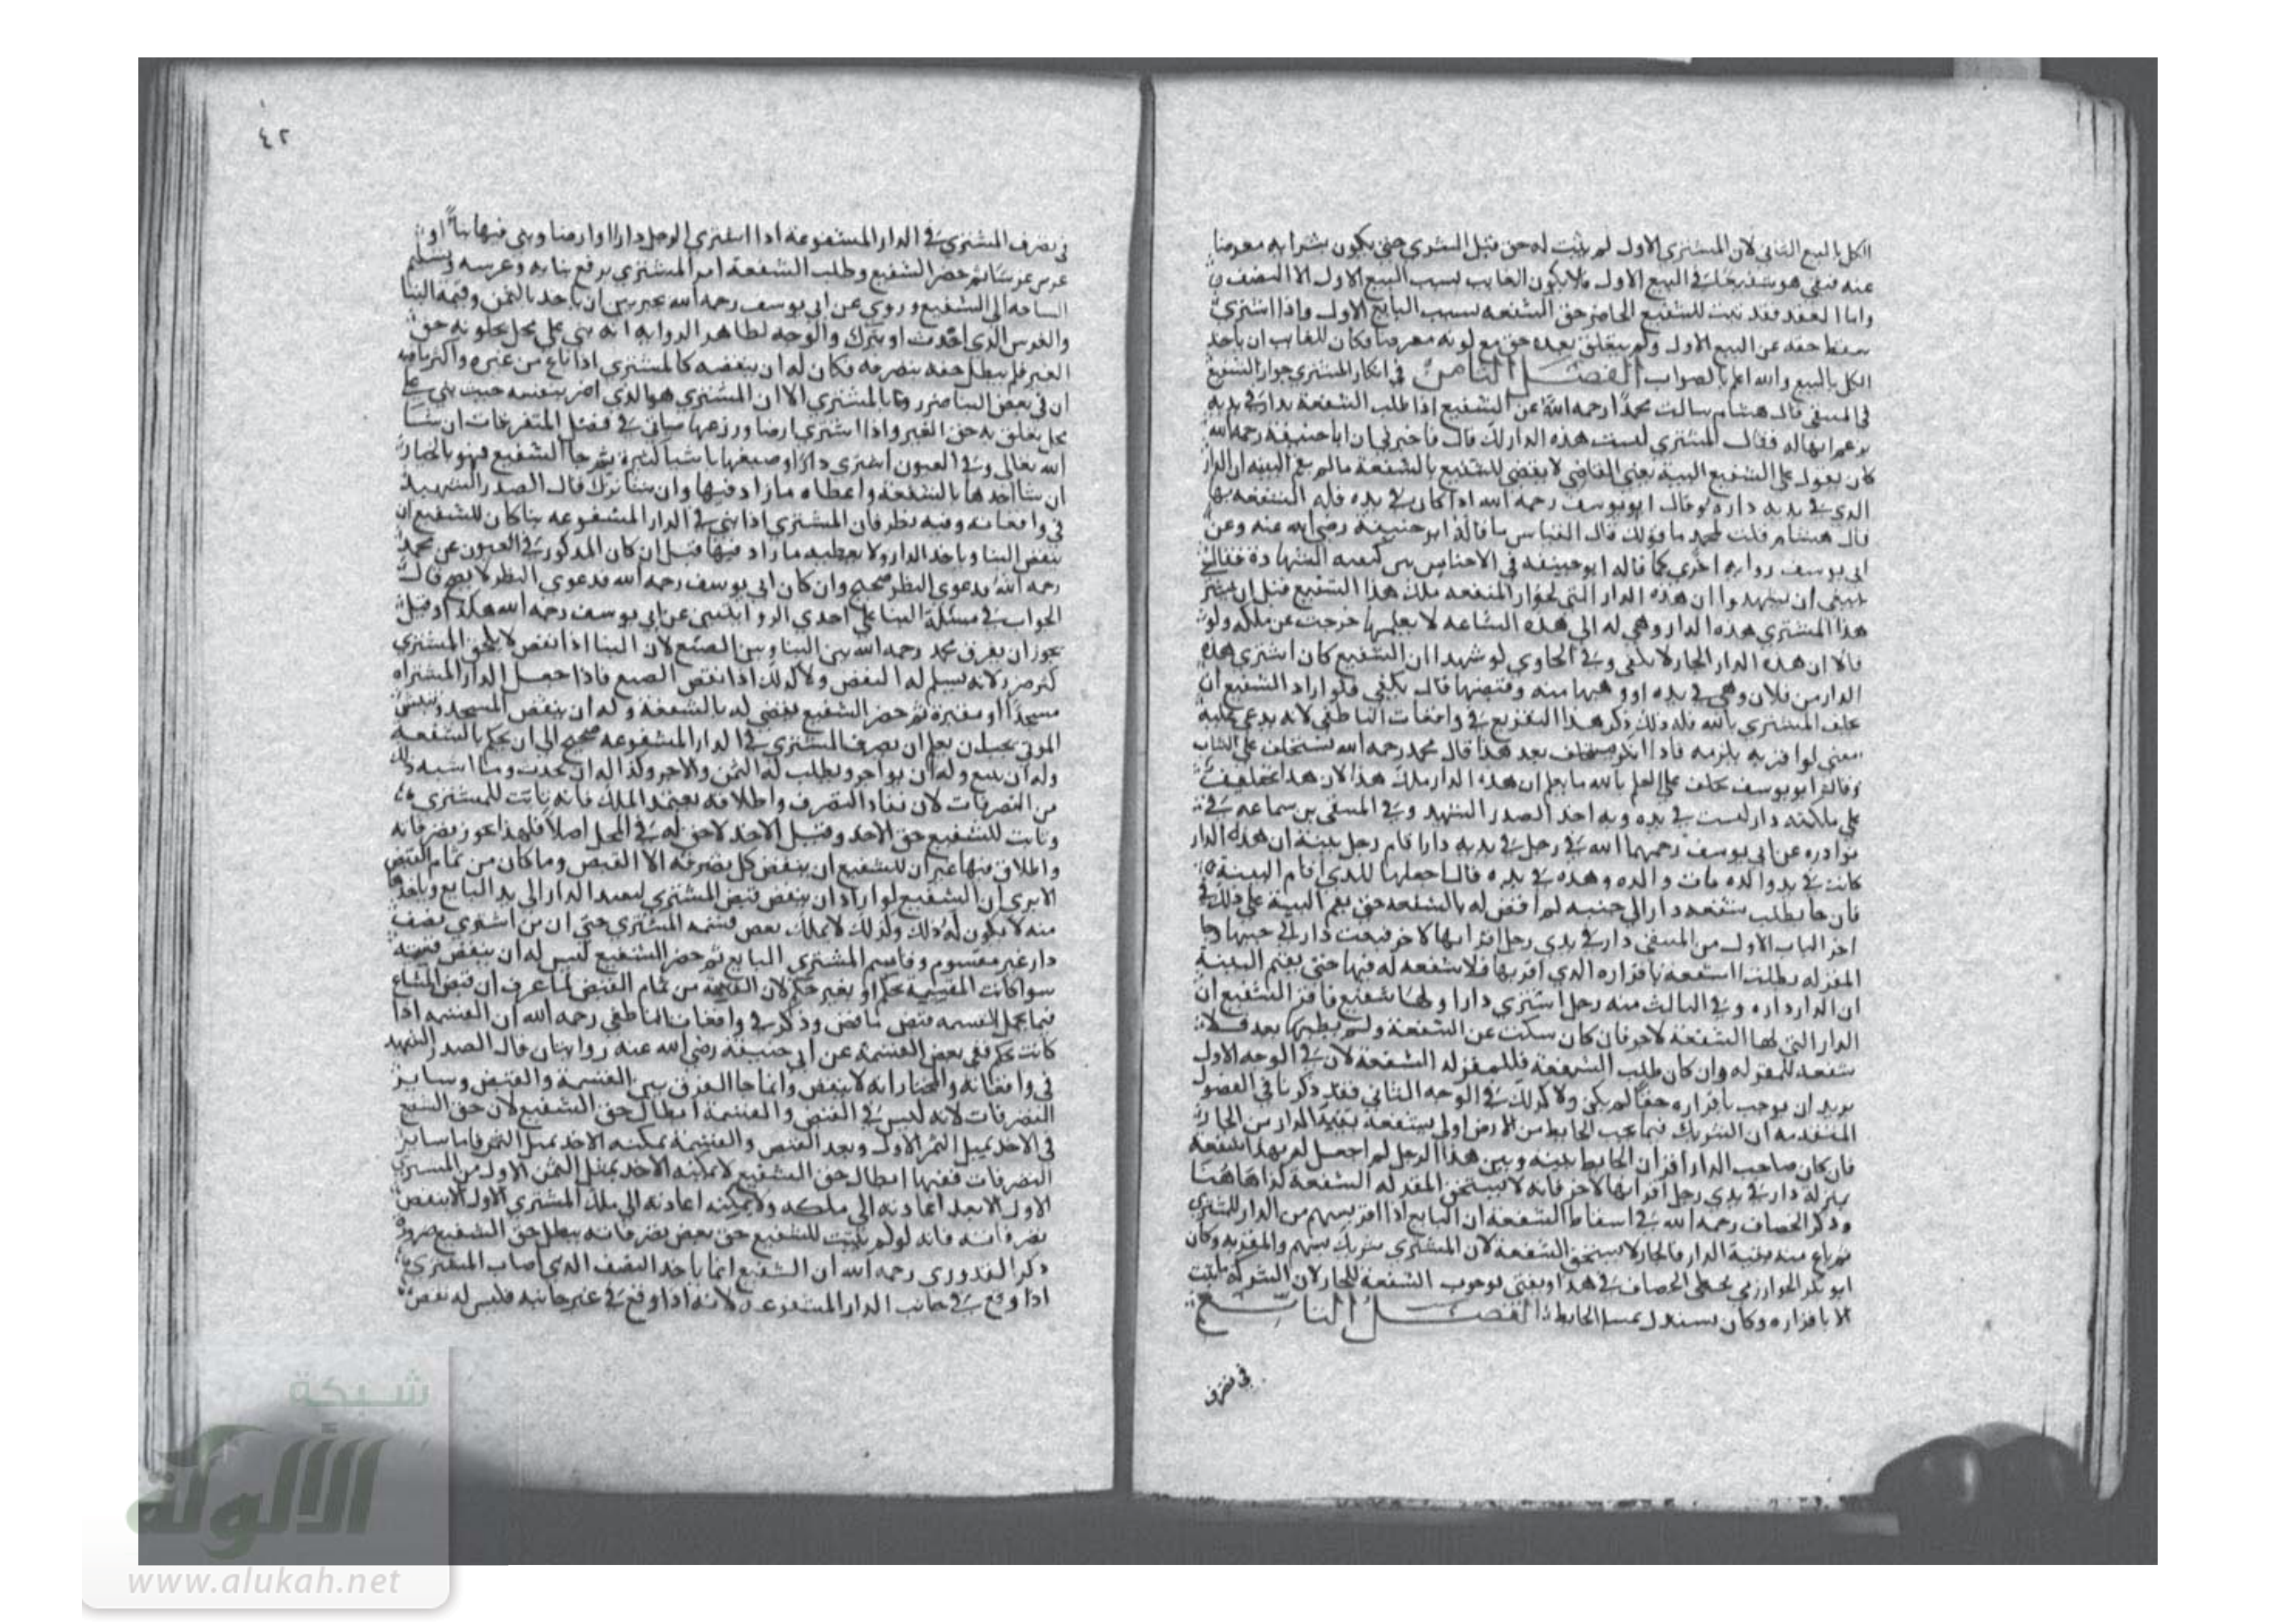 الكل بالبيع الثاني لان المشتري الاول لم يثبت له حق قبل الشري حتى يكون بشرايه معرضا
عنه فبقي هو شفيعا في البيع الاول فلا يكون الغايب بسبب البيع الاول الا النصف
واما العقد فقد ثبت للشفيع الحاضر حق الشفعه بسبب البايع الاول واذا اشتري
سقط حقه عن البيع الاول ولم يتعلق بعده حق مع لونه معرضا فكان للغايب ان ياخذ
الكل بالبيع والله اعلم بالصواب الفصل الثامن في انكار المشتري جوار الشفيع
في المنتقى قال هشام سالت محمدا رحمه الله عن الشفيع اذا طلب الشفعة بدار في يديه
يزعم انها له فقال المشتري ليست هذه الدار لك قال فاخبرني ان ابا حنيفه رحمه الله
كان يقول على الشفيع البينة يعني القاضي لا يقضي للشفيع بالشفعة ما لم يقم البينه ان الدار
الذي في يديه داره وقال ابو يوسف رحمه الله اذا كان في يده فله الشفعه بها
قال هشام قلت لمحمد ما قولك قال القياس ما قاله ابو حنيفه رضي الله عنه وعن
ابي يوسف روايه اخري كما قاله ابو حنيفه في الاجناس بين كيفيه الشهادة فقال
ينبغي ان يشهدوا ان هذه الدار التي بجوار ملك هذا الشفيع قبل ان يشتر
هذا المشتري هذه الدار وهي له الي هذه الساعه لا يعلمها خرجت عن ملكه ولو
قالا ان هذه الدار لجار لا يكفي وفي الحاوي لو شهدا ان الشفيع كان اشتري هذه
الدار من فلان وهي في يده او وهبها منه وقبضها قال يكفي فلو اراد الشفيع ان
يحلف المشتري بالله فله ذلك ذكر هذا التفريع في واقعات الناطفي لانه يدعي عليه
معني لو اقر به يلزمه فاذا انكر يستحلف بعد هذا قال محمد رحمه الله يستحلف علي الثبات
وقال ابو يوسف يحلف علي العلم بالله ما يعلم ان هذه الدار ملك هذا لان هذا تحليف
علي ملكيه دار ليست في يده وبه اخذ الصدر الشهيد وفي المنتقى بن سماعه في
نوادره عن ابي يوسف رحمهما الله في رجل في يديه دارا قام رجل بينة ان هذه الدار
كانت في يد والده مات والده وهذه في يده قال اجعلها للذي اقام البينة
فان جا يطلب شفعه دار الي جنبه لم اقض له بالشفعه حتى يقم البينة علي ذلك
اخر الباب الاول من المنتقى دار في يدي رجل اقر انها لاخر فبيعت دار الي جنبها
المقر له يطلب الشفعه باقراره الذي اقر بها فلا شفعه له فيها حتى يقيم البينة
ان الدار داره وفي الثالث منه رجل اشتري دارا ولها شفيع فاقر الشفيع ان
الدار التي لها الشفعة لاخر فان كان سكت عن الشفعة ولم يطلبها بعد فلا
شفعه للمقر له وان كان طلب الشفعة فللمقر له الشفعة لان في الوجه الاول
يريد ان يوجب باقراره حقا لم يكن ولا كذلك في الوجه الثاني فقد ذكرنا في الفصول
المتقدمه ان الشريك فيما تحت الحايط من الارض اولي بشفعة بقية الدار من الجار
فان كان صاحب الدار اقر ان الحايط بينه وبين هذا الرجل لم اجعل له بهذا شفعة
بمنزلة دار في يدي رجل اقر انها لاخر فانه لا يستحق المقر له الشفعة كذا هاهنا
وذكر الخصاف رحمه الله في اسقاط الشفعه ان البايع اذا اقر بسهم من الدار للمشتري
ثم باع منه بقية الدار فالجار لا يستحق الشفعة لان المشتري شريك بسهم والمقر به وكان
ابو بكر الخوارزمي يخطي الخصاف في هذا ويفتي بوجوب الشفعة للجار لان الشركة تثبت
الا باقراره وكان يستدل بمسلة الحايط الفصل التاسع
في تصرف
٤٢
في تصرف المشتري في الدار المشفوعة اذا اشتري الرجل دارا او ارضا وبني فيها بناً او
غرس غرسا ثم حضر الشفيع وطلب الشفعة امر المشتري برفع بنايه وغرسه وتسليم
الساحه الي الشفيع وروي عن ابي يوسف رحمه الله يخير بين ان ياخذ بالثمن وقيمة البنا
والغرس الذي احدث او يترك والوجه لظاهر الروايه انه بني علي محل مملو به حق
الغير فلم يبطل حقه بتصرفه فكان له ان ينقضه كالمشتري اذا باع من غيره واكثر ما فيه
ان في نقض البنا ضررا بالمشتري الا ان المشتري هو الذي اضر بنفسه حيث بني علي
محل تعلق به حق الغير واذا اشتري ارضا وزرعها سياتي في فصل المتفرقات ان شا
الله تعالي وفي العيون اشتري دارا وصبغها باشيا كثيرة ثم جا الشفيع فهو بالخيار
ان شا اخذها بالشفعة واعطاه ما زاد فيها وان شا ترك قال الصدر الشهيد
في واقعاته وفيه نظر فان المشتري اذا بني في الدار المشفوعه بنا كان للشفيع ان
ينقض البنا وياخذ الدار ولا يعطيه ما زاد فيها قيل ان كان المذكور في العيون عن محمد
رحمه الله فدعوي النظر صحيح وان كان ابي يوسف رحمه الله فدعوي النظر لا يصح قال
الجواب في مسئلة البنا علي احدي الروايتين عن ابي يوسف رحمه الله هكذا وقيل
يجوز ان يفرق محمد رحمه الله بين البنا وبين الصبغ لان البنا اذا نقض لا يلحق المشتري
كثير ضرر لانه يسلم له النقض ولا كذلك اذا نقض الصبغ فاذا جعل الدار المشتراه
مسجدا او مقبرة ثم حضر الشفيع يقضي له بالشفعة وله ان ينقض المسجد وينبش
الموتي يجب ان يعلم ان تصرف المشتري في الدار المشفوعه صحيح الي ان يحكم بالشفعة
وله ان يبيع وله ان يواجر ويطلب له الثمن والاجر وكذا له ان يهدم وما اشبه ذلك
من التصرفات لان نفاذ التصرف واطلاقه يعتمد الملك فانه ثابت للمشتري
وثابت للشفيع حق الاخذ وقبل الاخذ لا حق له في المحل اصلا فلهذا يجوز تصرفاته
واطلاق فيها غير ان للشفيع ان ينقض كل تصرفه الا القبض وما كان من تمام القبض
الا يري ان الشفيع لو اراد ان ينقض قبض المشتري ليعيد الدار الي يد البايع وياخذها
منه لا يكون له ذلك وكذلك لا يملك نقض قسمة المشتري حتى ان من اشتري نصف
دار غير مقسوم وقاسم المشتري البايع ثم حضر الشفيع ليس له ان ينقض قسمته
سوا كانت القسمة بحكم او بغير حكم لان القسمة من تمام القبض لما عرف ان قبض المشاع
فيما يحتمل القسمه قبض ناقص وذكر في واقعات الناطفي رحمه الله ان القسمه اذا
كانت بحكم ففي نقض القسمة عن ابي حنيفة رضي الله عنه روايتان قال الصدر الشهيد
في واقعاته والمختار انه لا ينقض وانما جا الفرق بين القسمة والقبض وساير
التصرفات لانه ليس في القبض والقسمة ابطال حق الشفيع لان حق الشفيع
في الاخذ بمثل الثمن الاول وبعد القبض والقسمة يمكنه الاخذ بمثل الثمن فاما ساير
التصرفات ففيها ابطال حق الشفيع لا يمكنه الاخذ بمثل الثمن الاول من المشتري
الاول الا بعد اعادته الي ملكه ولا يمكنه اعادته الي ملك المشتري الاول الا بنقض
تصرفاته فانه لو لم يثبت للشفيع حق نقض تصرفاته يبطل حق الشفيع ضرورة
ذكر القدوري رحمه الله ان الشفيع انما ياخذ النصف الذي اصاب المشتري
اذا وقع في جانب الدار المشفوعه لانه اذا وقع في غير جانبه فليس له نقض
شبكة
الألوكة
www.alukah.net